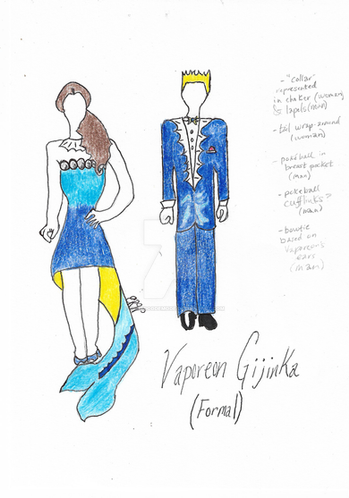 - "collar"
represented
in choker (woman)
& lapels (man)
- tail wrap-around
(woman)
- pokéball in
breast pocket
(man)
- pokeball
cufflinks
(man)
- bowtie
based on
Vaporeon's
ears
(man)
Vaporeon Gijinka
(Formal)